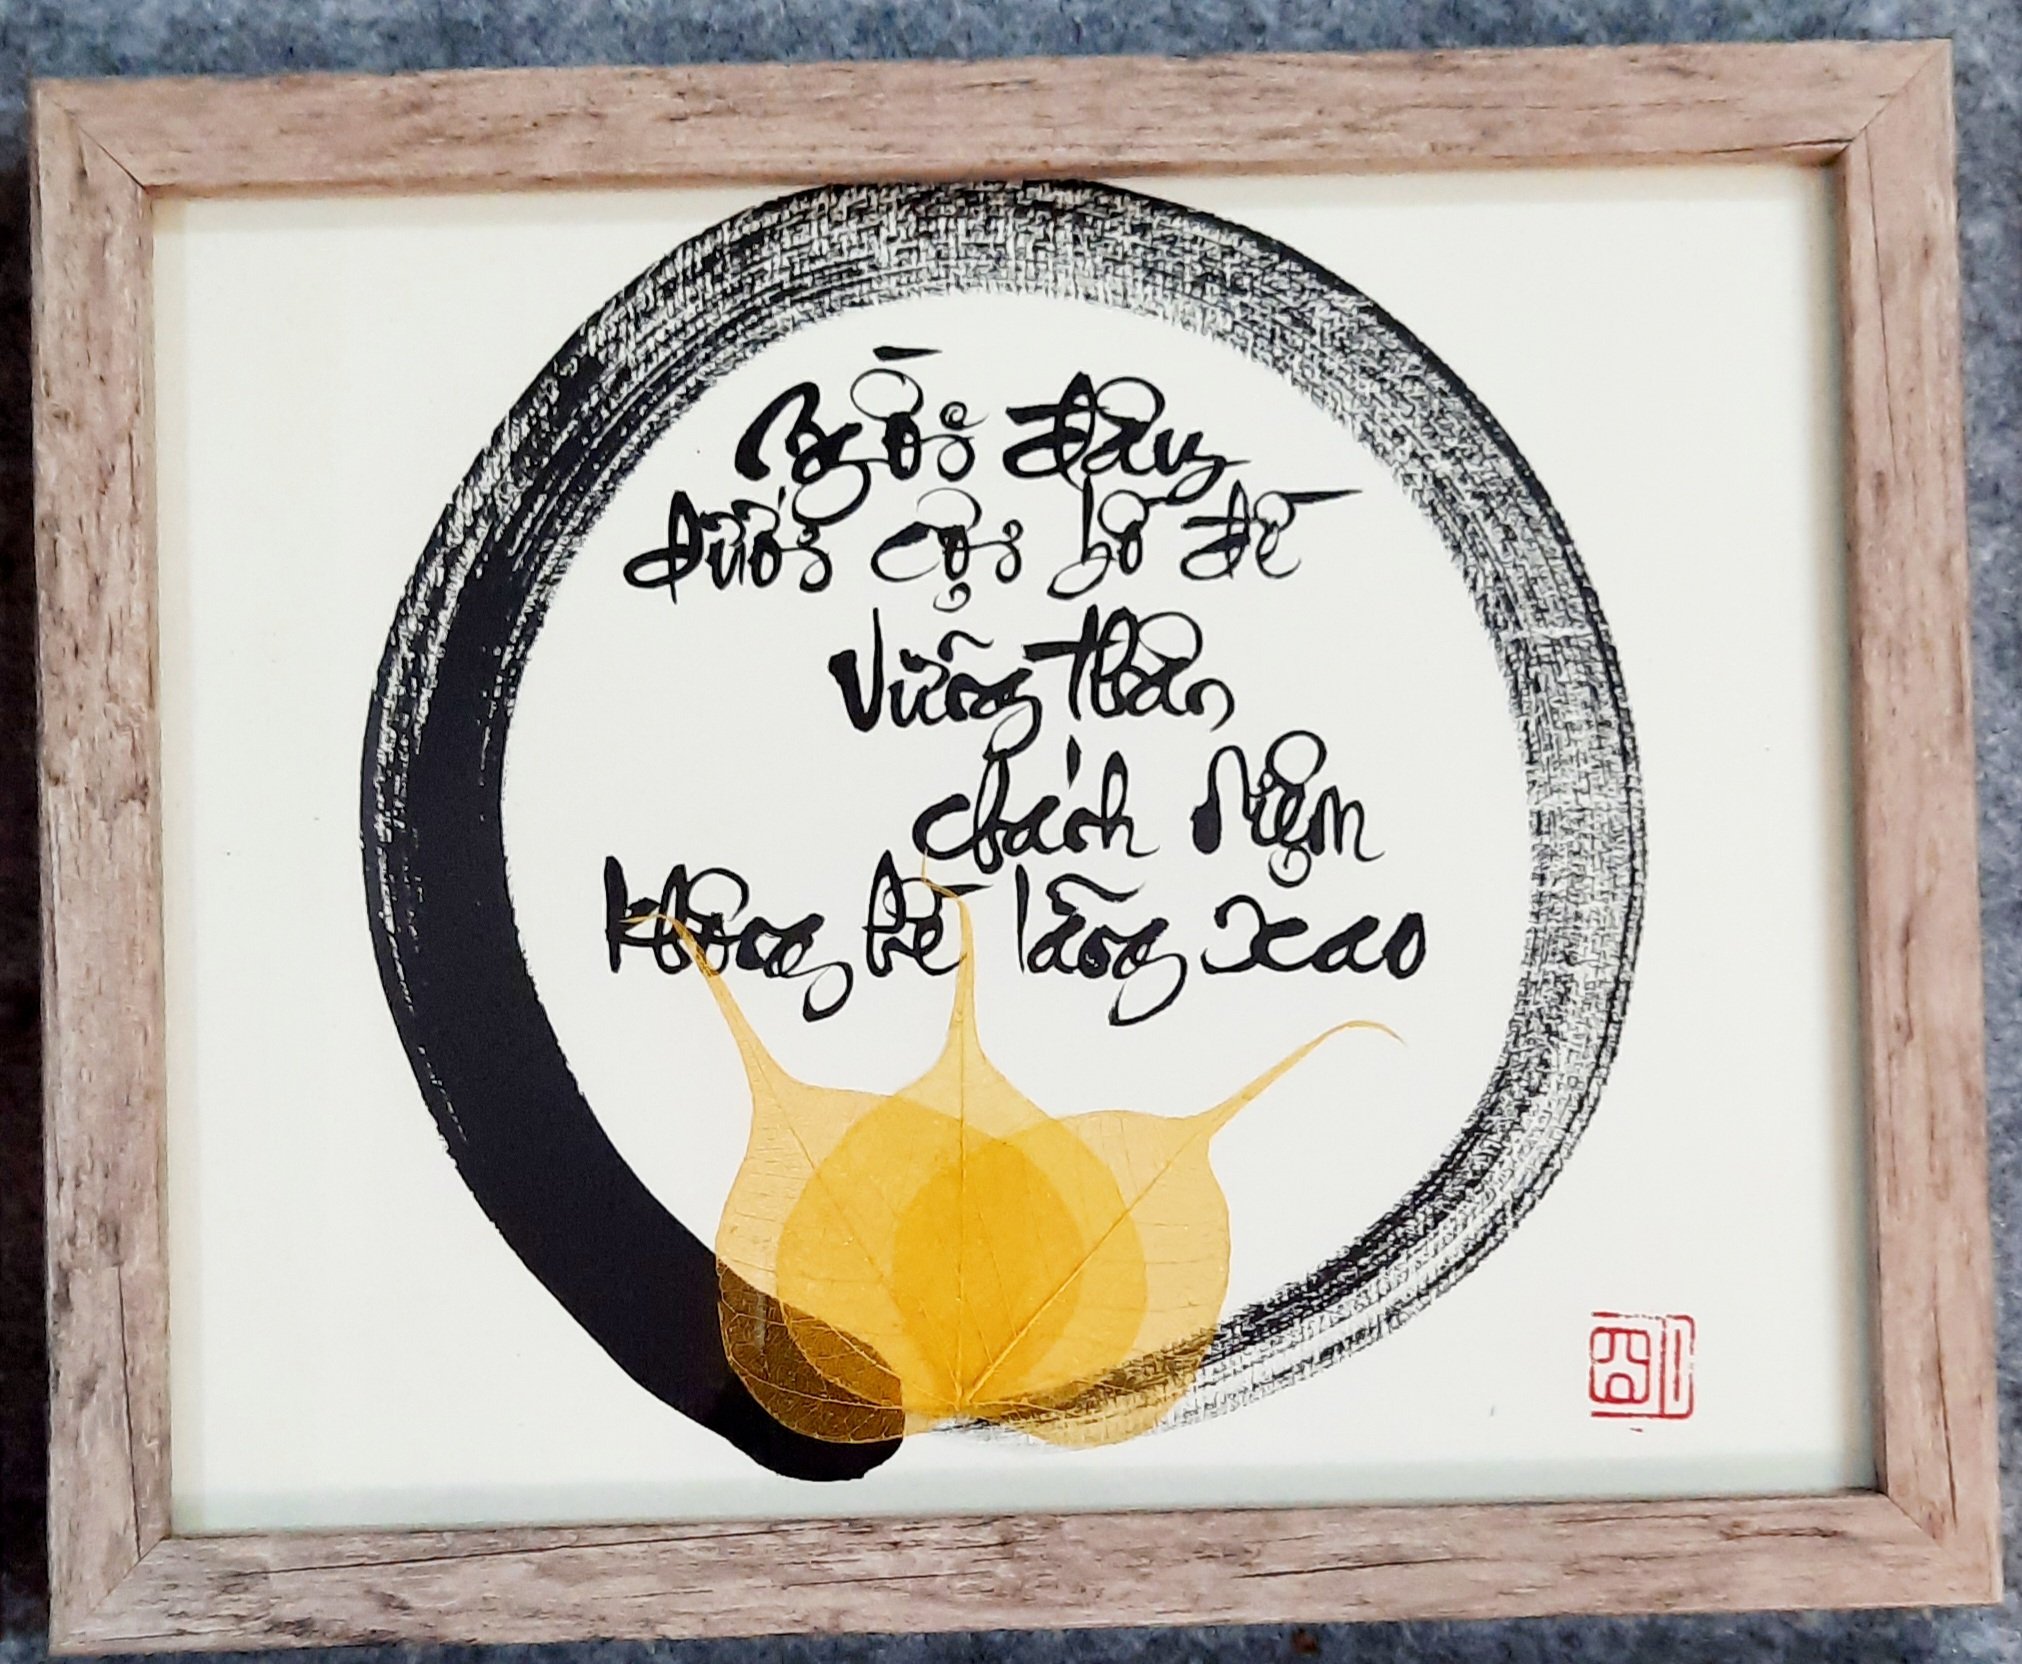 Ngồi đây
dưới cội bồ đề
Vững thân
chánh Niệm
không hề lãng xao